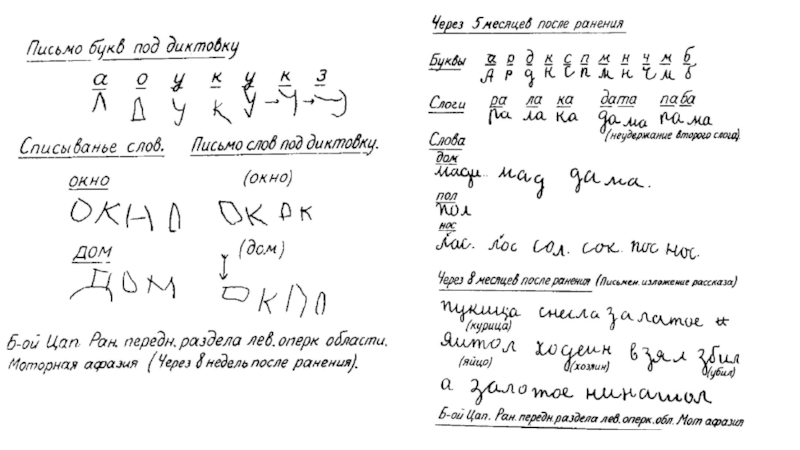 Письмо букв под диктовку
а о у к у к з
Л О У К У → Ч → У
Списыванье слов. Письмо слов под диктовку.
окно (окно)
ОКНО ОКОК
дом (дом)
ДОМ ОКПО
Б-ой Цап. Ран. передн. раздела лев. оперк области.
Моторная афазия (Через 8 недель после ранения).
Через 5 месяцев после ранения
Буквы а р д к с п м н ч м б
А Р д К С П М Н Ч М б
Слоги ра ла ка дата паба
ра ла ка дама рама
(неудержание второго слога)
Слова
дом
мади.. мад дама.
пол
пол
нос
лас. лос сол. сок. пос нос.
Через 8 месяцев после ранения (Письмен. изложение рассказа)
пукица снесла залатое
(курица)
яитол ходеин взял збил
(яйцо) (хозяин) (убил)
а залотое нинашол
Б-ой Цап. Ран. передн. раздела лев. оперк. обл. Мот афазия